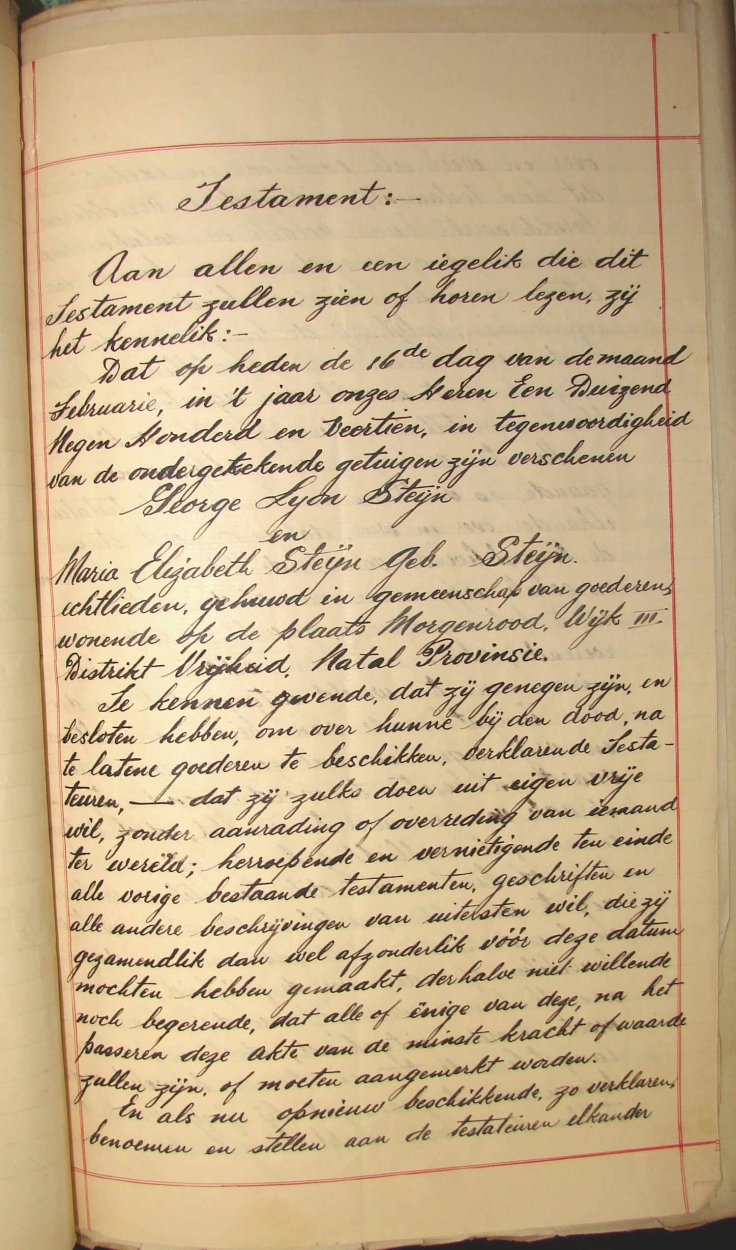 Testament:—
Aan allen en een iegelik die dit
Testament zullen zien of horen lezen, zij
het kennelik:—
Dat op heden de 16de dag van de maand
Februarie, in 't jaar onzes Heren Een Duizend
Negen Honderd en Veertien, in tegenwoordigheid
van de ondergetekende getuigen zijn verschenen
George Lyon Steijn
en
Maria Elizabeth Steijn Geb. Steijn.
echtlieden, gehuwd in gemeenschap van goederen,
wonende op de plaats Morgenrood, Wijk III.
Distrikt Vrijheid, Natal Provinsie.
Te kennen gevende, dat zij genegen zijn, en
besloten hebben, om over hunne bij den dood, na
te latene goederen te beschikken, verklarende Testa-
teuren, — dat zij zulks doen uit eigen vrije
wil, zonder aanrading of overreding van iemand
ter wereld; herroepende en vernietigende ten einde
alle vorige bestaande testamenten, geschriften en
alle andere beschrijvingen van uitersten wil, die zij
gezamendlik dan wel afzonderlik vóór deze datum
mochten hebben gemaakt, derhalve niet willende
noch begerende, dat alle of enige van deze, na het
passeren deze akte van de minste kracht of waarde
zullen zijn, of moeten aangemerkt worden.
En als nu opnieuw beschikkende, zo verklaren,
benoemen en stellen aan de testateuren elkander